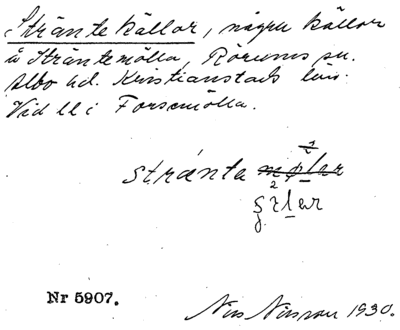 Stränte källor, några källor
å Sträntemölla, Rörums sn.
Albo hd. Kristianstads län.
Vid ll i Forsemölla.
stránta
Nr 5907.
Nils Nilsson 1930.